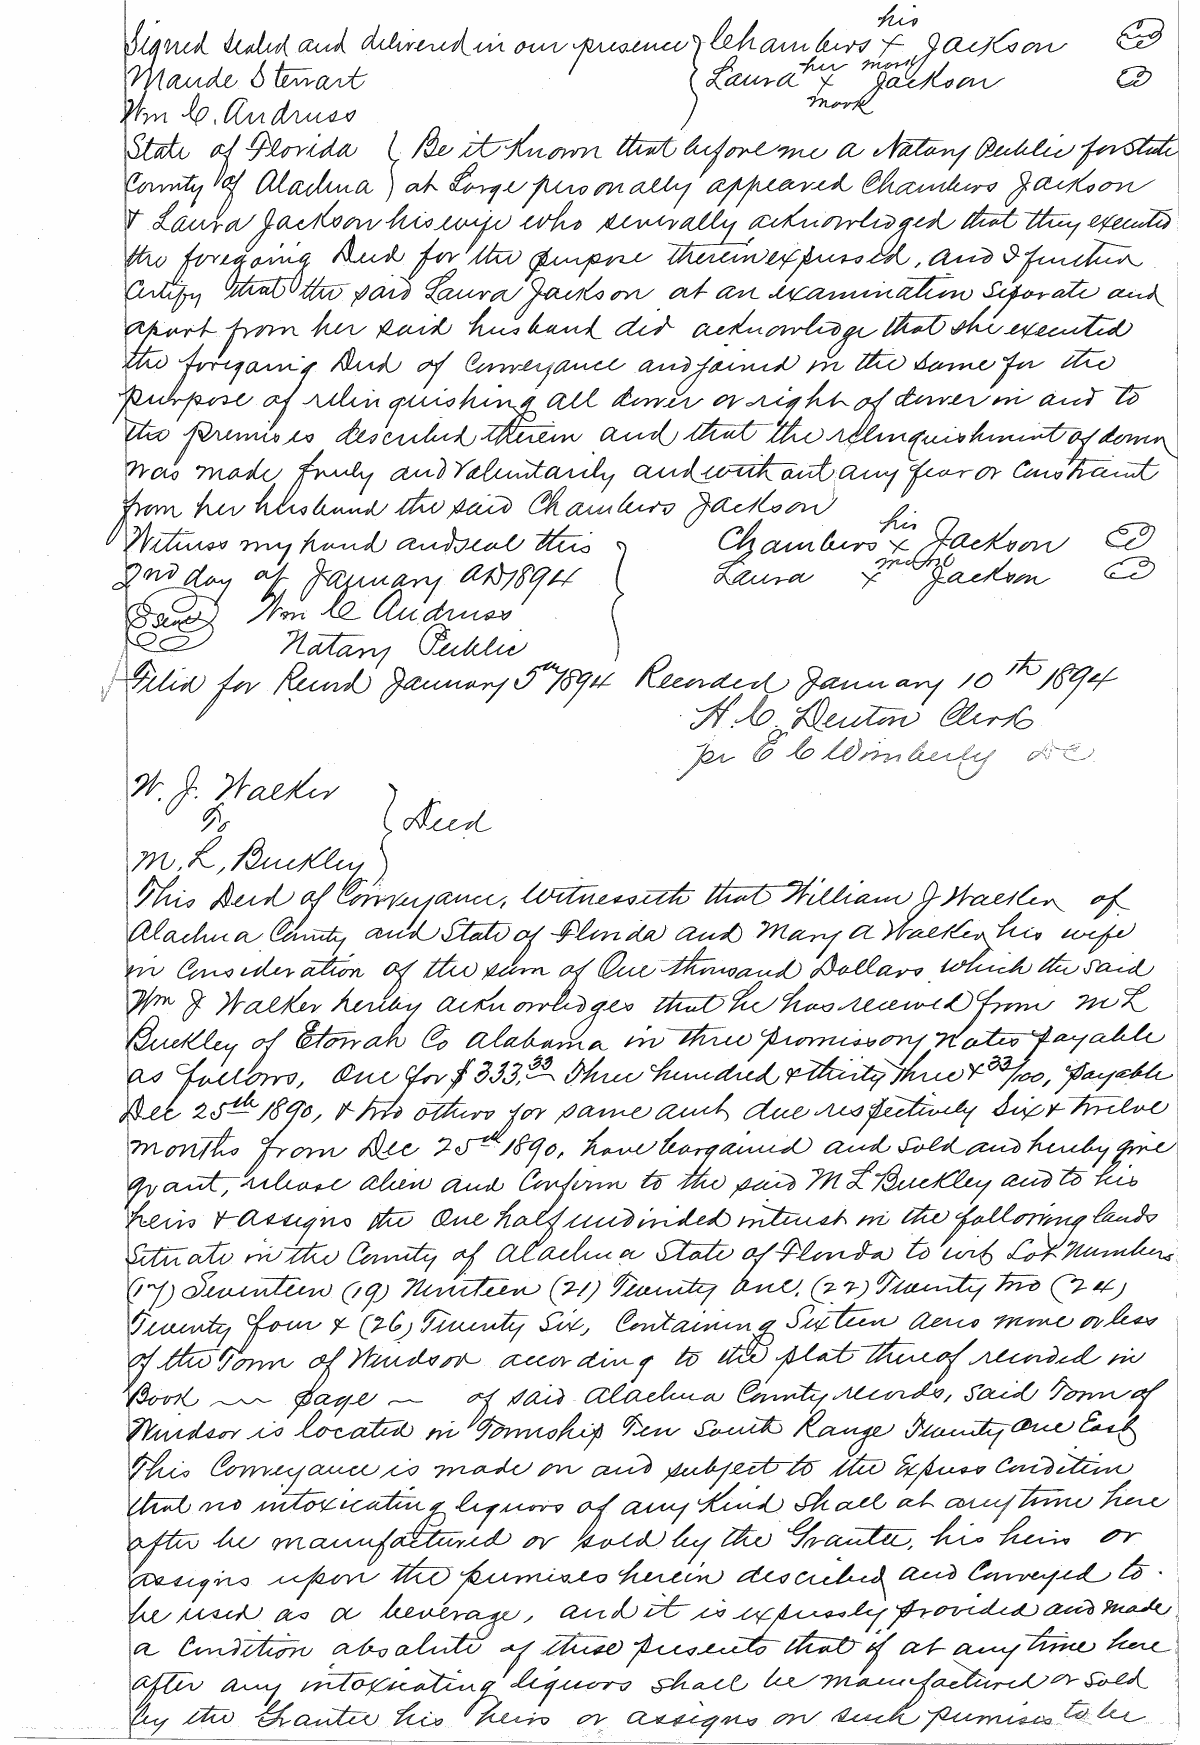 Signed sealed and delivered in our presence } Chambers his x mark Jackson
Maude Stewart } Laura her x mark Jackson
Wm C. Andruss
State of Florida { Be it Known that before me a Notary Public for State
County of Alachua } at Large personally appeared Chambers Jackson
& Laura Jackson his wife who severally acknowledged that they executed
the foregoing Deed for the purpose therein expressed, and I further
Certify that the said Laura Jackson at an examination Separate and
apart from her said husband did acknowledge that she executed
the foregoing Deed of Conveyance and joined in the same for the
purpose of relinquishing all dower or right of dower in and to
the premises described therein and that the relinquishment of dower
was made freely and voluntarily and without any fear or constraint
from her husband the said Chambers Jackson
Witness my hand and seal this } Chambers his x mark Jackson
2nd day of January AD 1894 } Laura x Jackson
Seal Wm C Andruss
Notary Public
Filed for Record January 5th 1894 Recorded January 10th 1894
H. C. Denton Clerk
pr E C Wimberly DC
W. J. Walker
To } Deed
M. L, Buckley
This Deed of Conveyance, Witnesseth that William J Walker of
Alachua County and State of Florida and Mary A Walker his wife
in Consideration of the sum of One thousand Dollars which the said
Wm J Walker hereby acknowledges that he has received from M L
Buckley of Etowah Co Alabama in three promissory notes payable
as follows, One for $333.33 Three hundred & thirty three & 33/100, payable
Dec 25th 1890, & two others for same amt due respectively Six & twelve
months from Dec 25th 1890, have bargained and sold and hereby give
grant, release alien and Confirm to the said M L Buckley and to his
heirs & assigns the One half undivided interest in the following lands
Situate in the County of Alachua State of Florida to wit Lot Numbers
(17) Seventeen (19) Nineteen (21) Twenty One, (22) Twenty two (24)
Twenty four & (26) Twenty Six, Containing Sixteen acres more or less
of the Town of Windsor according to the plat thereof recorded in
Book — page — of said Alachua County records, said Town of
Windsor is located in Township Ten South Range Twenty One East
This Conveyance is made on and subject to the Express Condition
that no intoxicating liquors of any Kind Shall at any time here
after be manufactured or sold by the Grantee, his heirs or
assigns upon the premises herein described and Conveyed to
be used as a beverage, and it is expressly provided and made
a Condition absolute of these presents that if at any time here
after any intoxicating liquors shall be manufactured or sold
by the Grantee his heirs or assigns on such premises to be